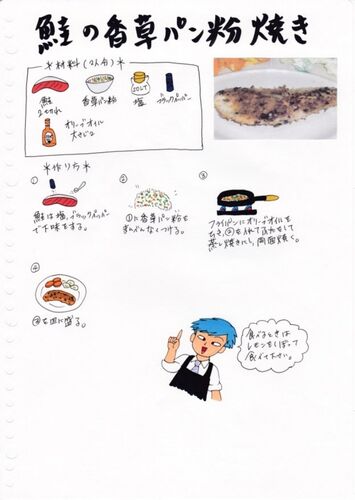 鮭の香草パン粉焼き
*材料(2人分)*
鮭
2切れ
香草パン粉
塩
ブラックペッパー
オリーブオイル
大さじ2
*作り方*
①
鮭は塩、ブラックペッパー
で下味をする。
②
①に香草パン粉を
まんべんなくつける。
③
フライパンにオリーブオイルを
ひき、②を入れて
蒸し焼きにし、両面焼く。
④
③を皿に盛る。
食べるときは
レモンをしぼって
食べて下さい。